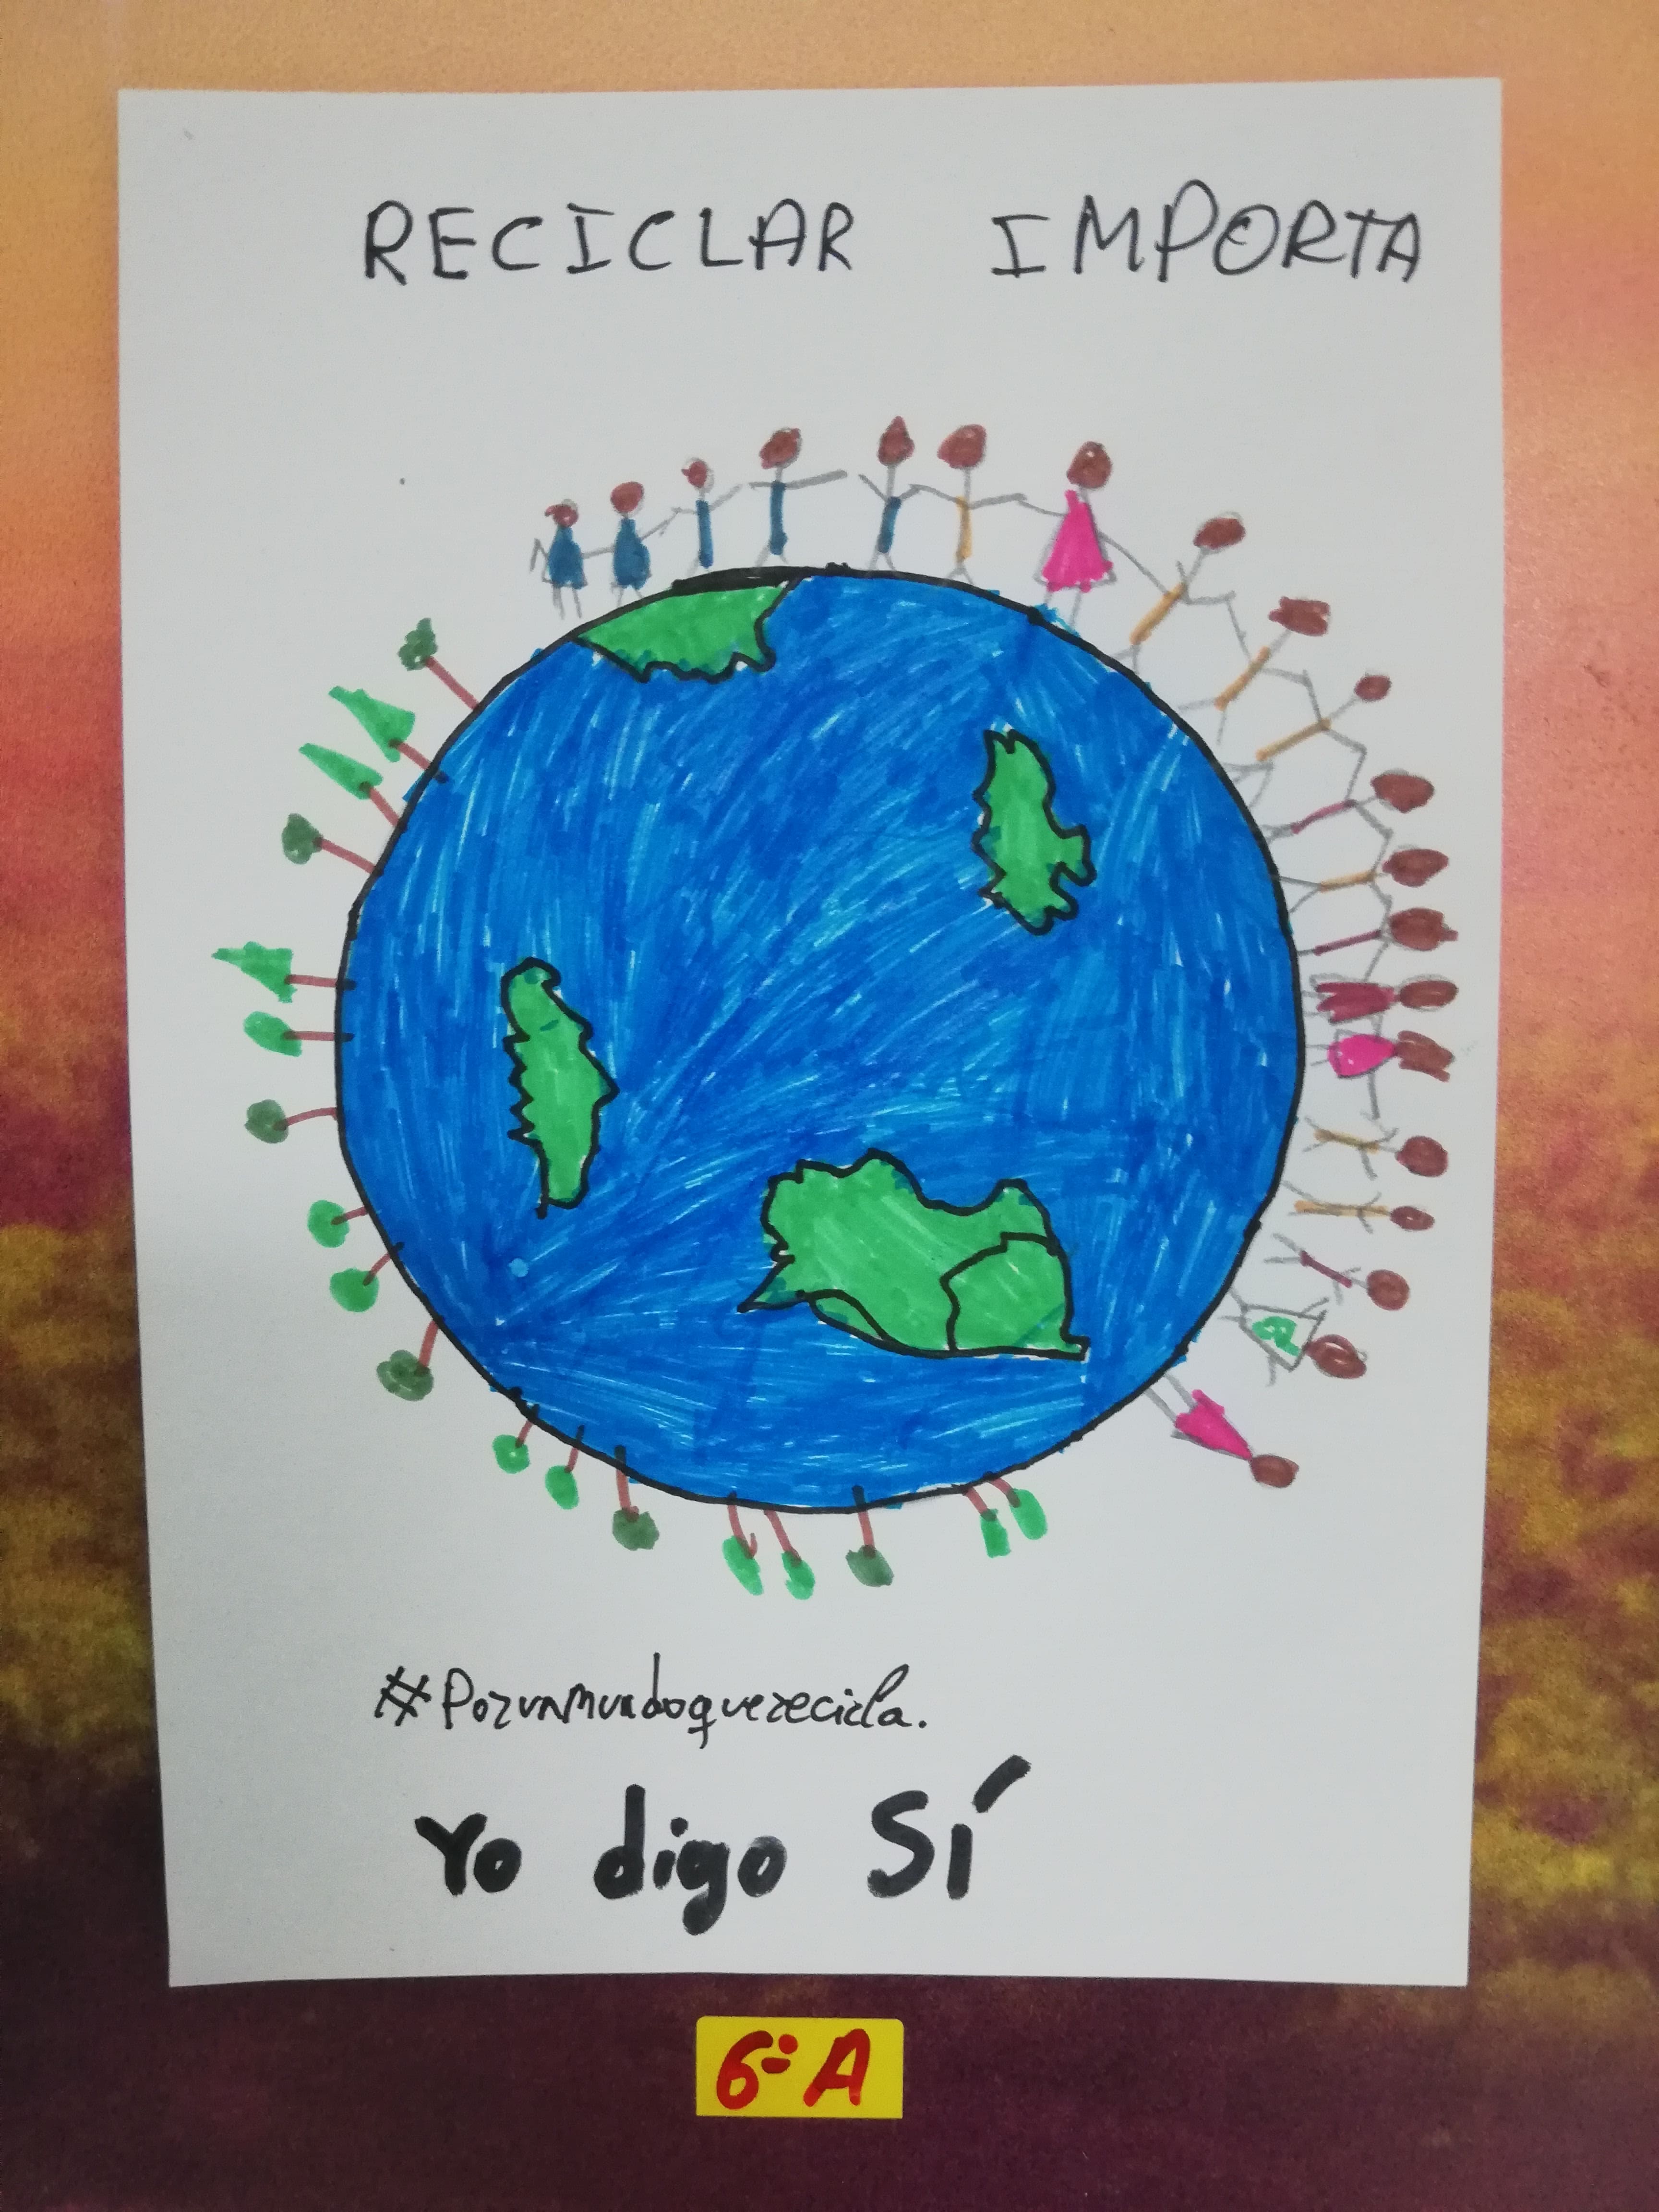 RECICLAR IMPORTA
#Porunmundoquerecicla.
Yo digo SÍ
6º A